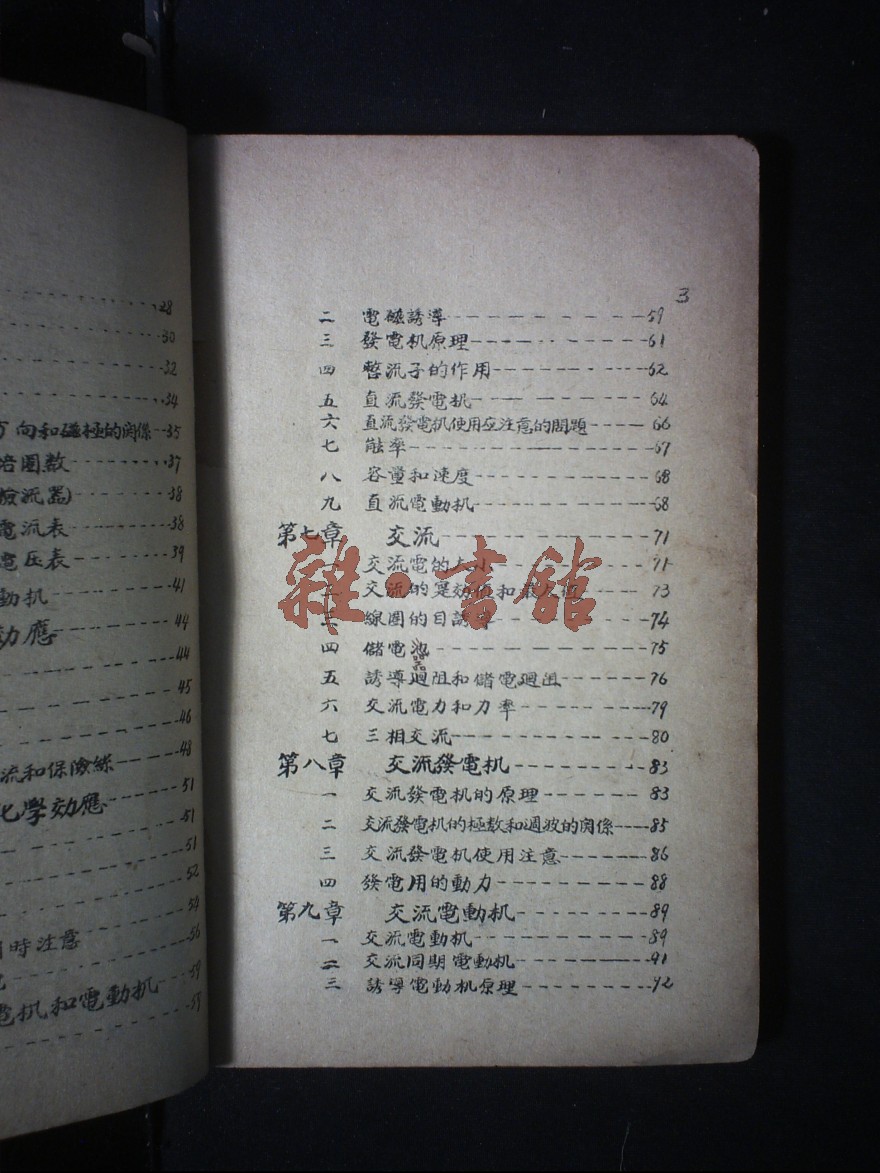 28
30
32
34
向和磁極的関係--35
圈數-------37
流器)------38
電流表------38
電压表------39
動机------41
効應------44
44
45
46
流和保險絲------48
化學効應-----51
51
51
52
54
時注意 56
59
電机和電動机----59
3
二 電磁誘導---------59
三 發電机原理---------61
四 整流子的作用--------62
五 直流發電机--------64
六 直流發電机使用应注意的問題-----66
七 能率---------67
八 容量和速度--------68
九 直流電動机--------68
第七章 交流---------71
交流電的大小 71
交流的実効値和最大値 73
三 線圈的自誘導------74
四 儲電器--------75
五 誘導廻阻和儲電廻阻-----76
六 交流電力和力率------79
七 三相交流--------80
第八章 交流發電机------83
一 交流發電机的原理------83
二 交流發電机的極数和週波的関係----85
三 交流發電机使用注意------86
四 發電用的動力-------88
第九章 交流電動机-------89
一 交流電動机--------89
二 交流同期電動机-------91
三 誘導電動机原理-------92
雜·書館